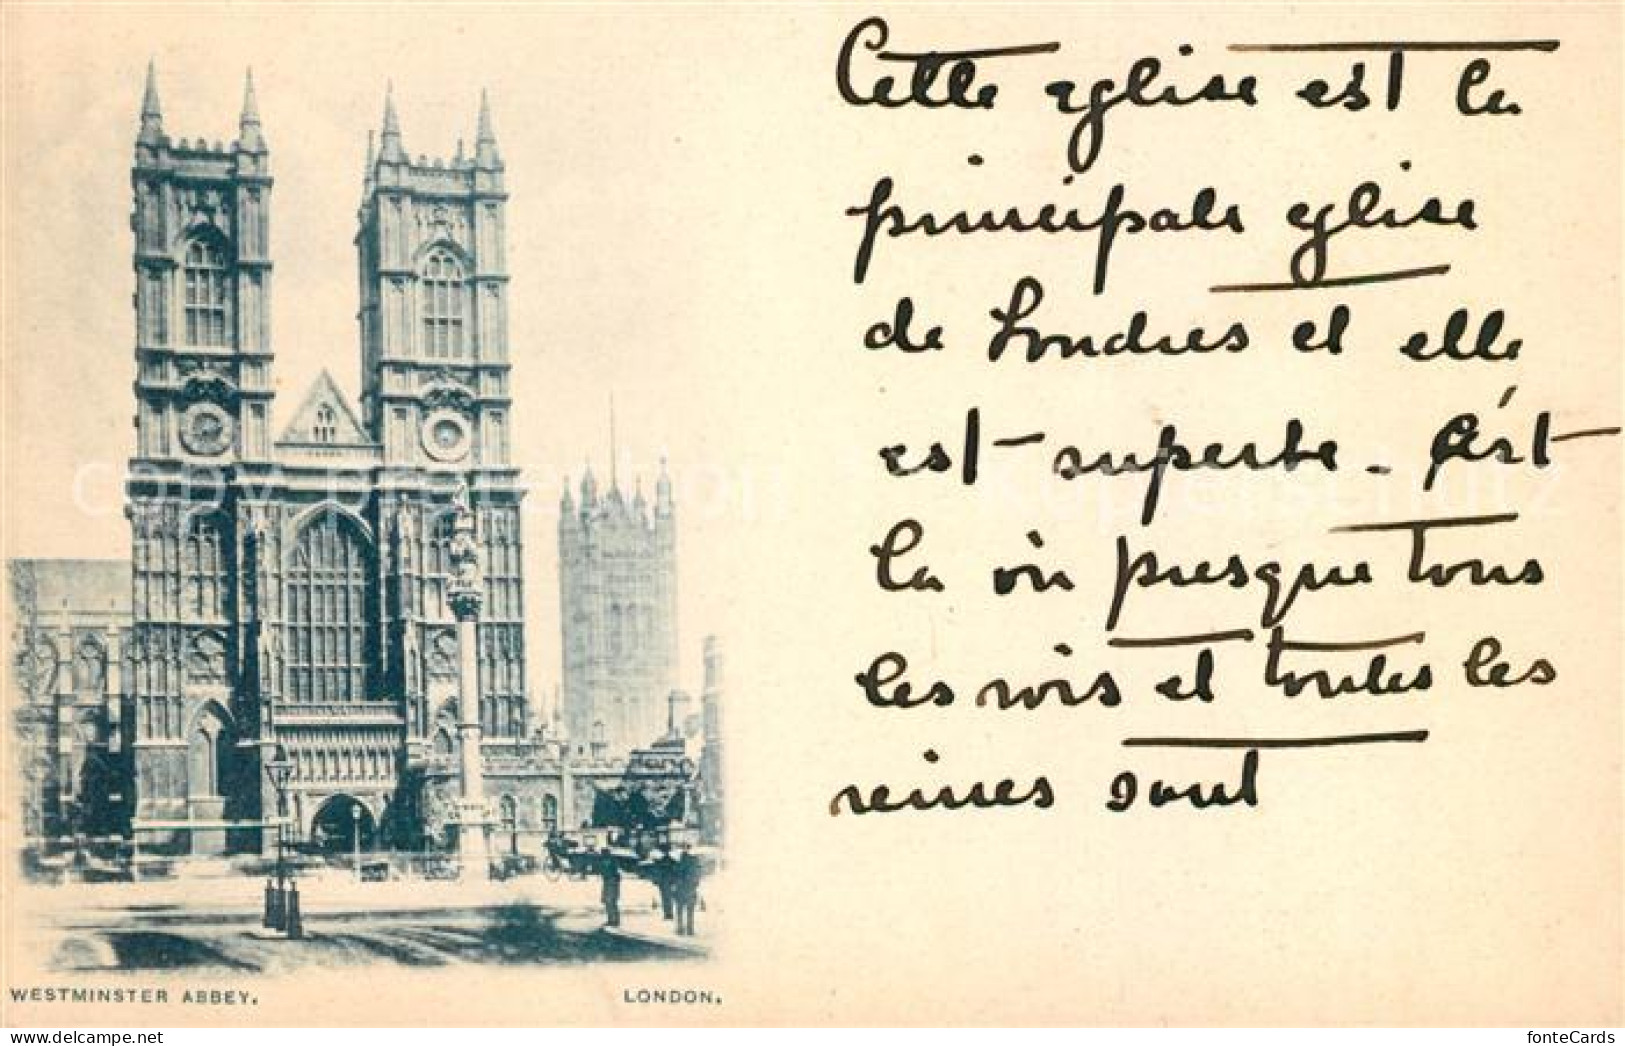 Cette eglise est la
principale eglise
de Londres et elle
est superbe - C'est
la où presque tous
les rois et toutes les
reines sont
WESTMINSTER ABBEY. LONDON.
copyright Kupferschmidt
fonteCards